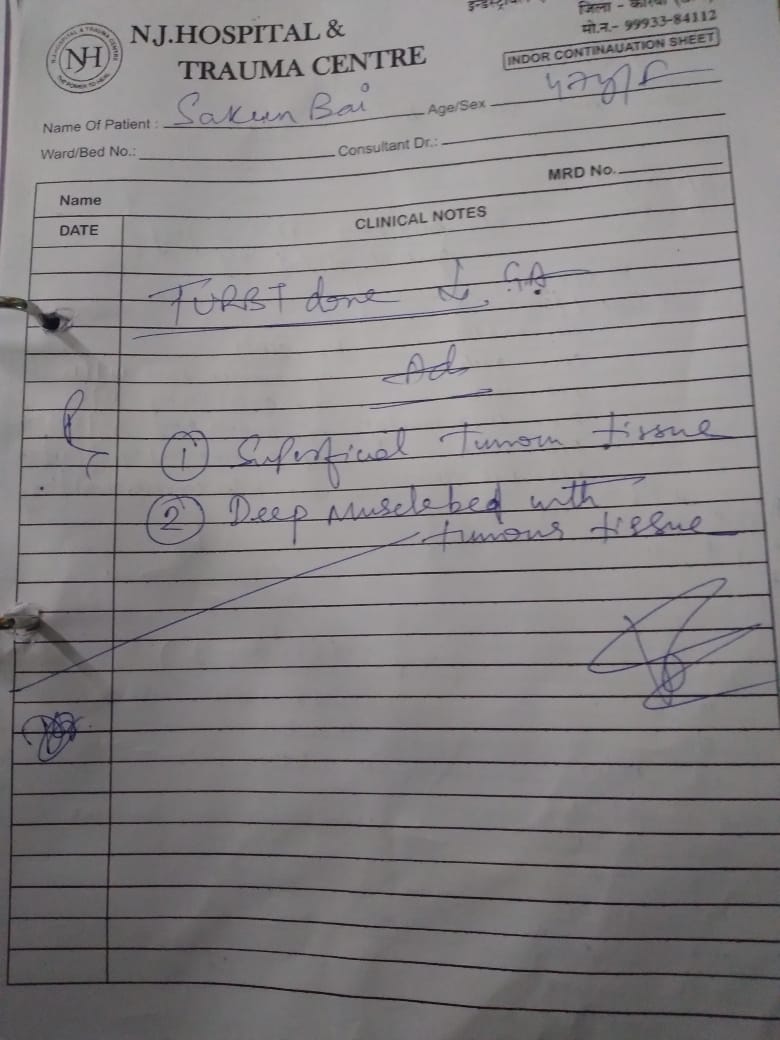 जिला -
मो.न.- 99933-84112
N.J.HOSPITAL &
TRAUMA CENTRE
NH
INDOR CONTINAUATION SHEET
Name Of Patient : Sakun Bai Age/Sex
Ward/Bed No.: Consultant Dr.:
MRD No.
Name
DATE CLINICAL NOTES
TURBT done ↓ GA
Ad
① Superficial Tumour tissue
② Deep Muscle bed with
tumour tissue